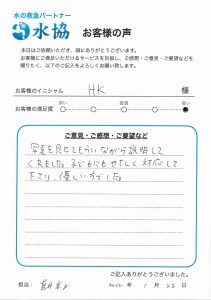 水の救急パートナー
水協 お客様の声
本日はご依頼いただき、誠にありがとうございます。
お客様にご満足いただけるサービスを目指し、ご意見・ご感想・ご要望などを
賜りたく、以下のご記入をよろしくお願い致します。
お客様のイニシャル HK 様
お客様の満足度 悪い 普通 良い
ご意見・ご感想・ご要望など
写真を見せてもらいながら説明して
くれました。子どもにもやさしく対応して
下さり、優しい方でした。
ご記入ありがとうございました。
担当: 2022年 1月 25日